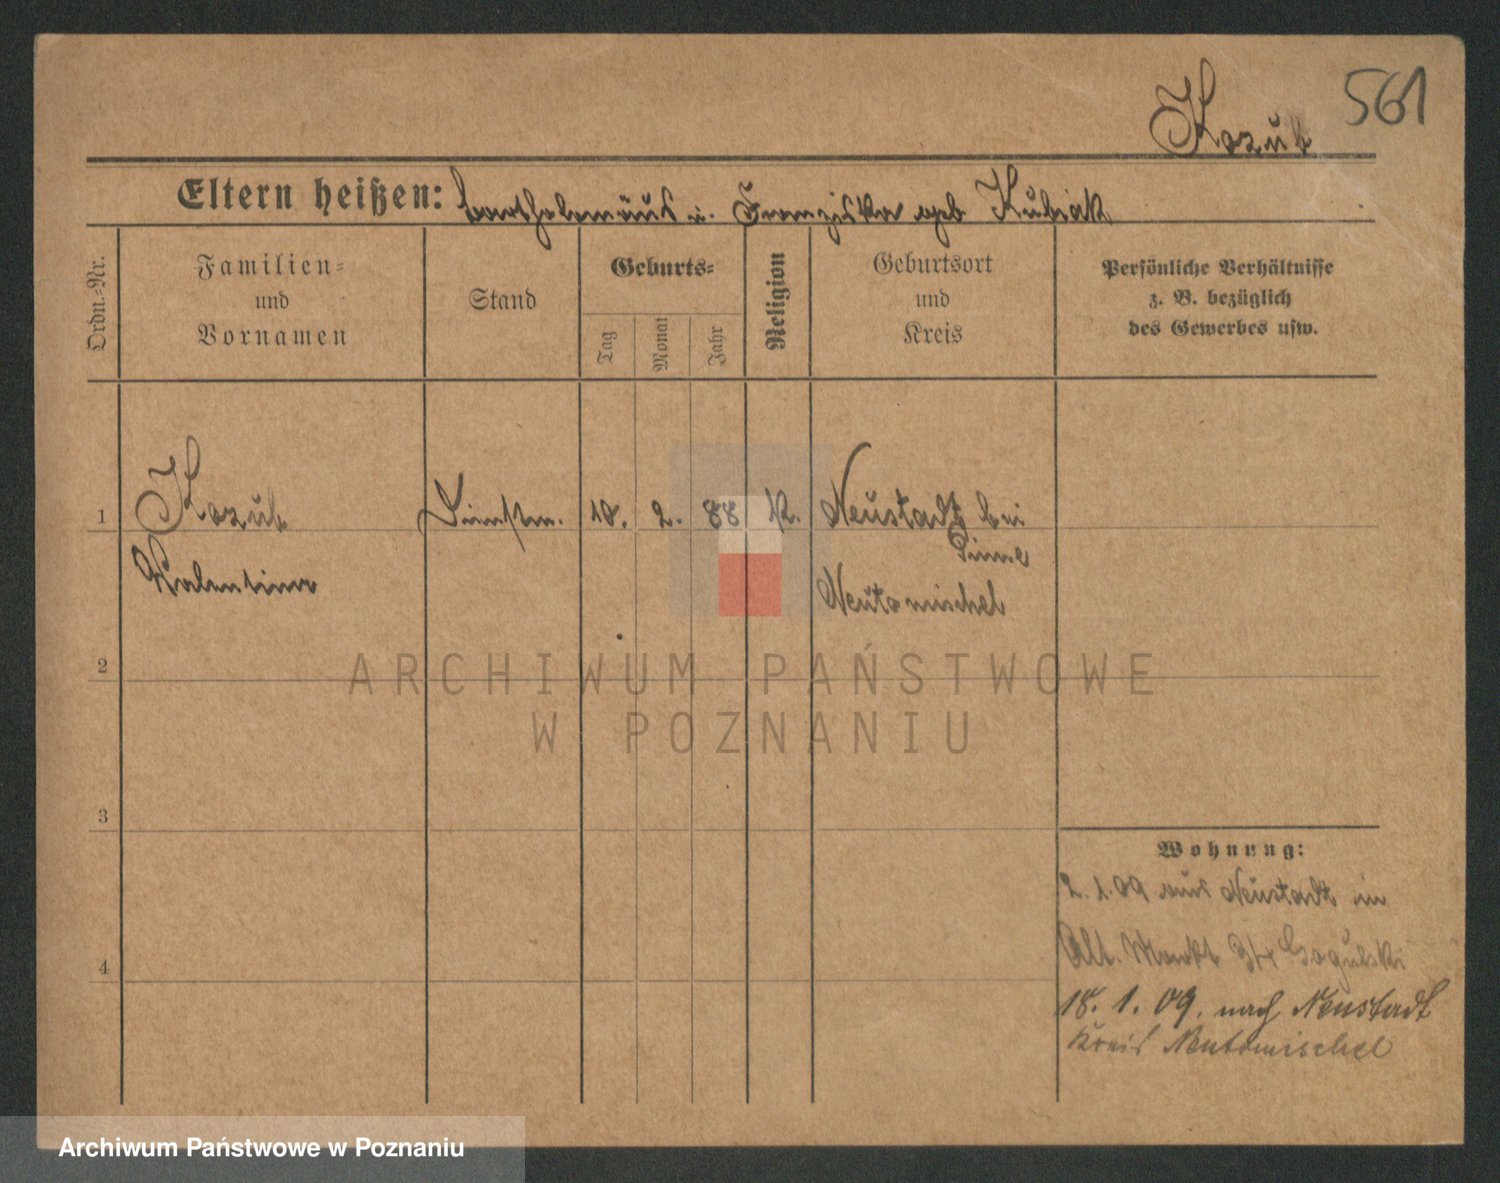 561
Kozub
Eltern heißen: Bartholomäus u. Franziska geb Kubiak
Ordn.-Nr.
Familien-
und
Vornamen
Stand
Geburts-
Tag
Monat
Jahr
Religion
Geburtsort
und
Kreis
Persönliche Verhältnisse
z. B. bezüglich
des Gewerbes usw.
1 Kozub Dienstm. 10. 2. 88 K. Neustadt bei
Pinne
Valentina Neutomischel
2
3
4
Wohnung:
2. 1. 09 aus Neustadt in
Alt. Markt
18. 1. 09. nach Neustadt
Kreis Neutomischel
ARCHIWUM PAŃSTWOWE
W POZNANIU
Archiwum Państwowe w Poznaniu